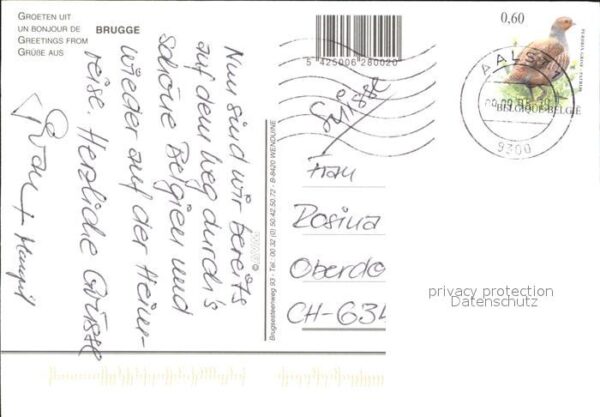 GROETEN UIT
UN BONJOUR DE
GREETINGS FROM
GRÜßE AUS
BRUGGE
Nun sind wir bereits
auf dem Weg durch's
schöne Belgien und
wieder auf der Heim-
reise. Herzliche Grüsse
5 425006 280020
0,60
PERDRIX GRISE - PATRIJS
BELGIQUE-BELGIË
AALST 1
9300
Frau
Rosina
Oberdo
CH-634
Brugsesteenweg 93 - Tel.: 00 32 (0) 50 42 50 72 - B-8420 WENDUINE
privacy protection
Datenschutz